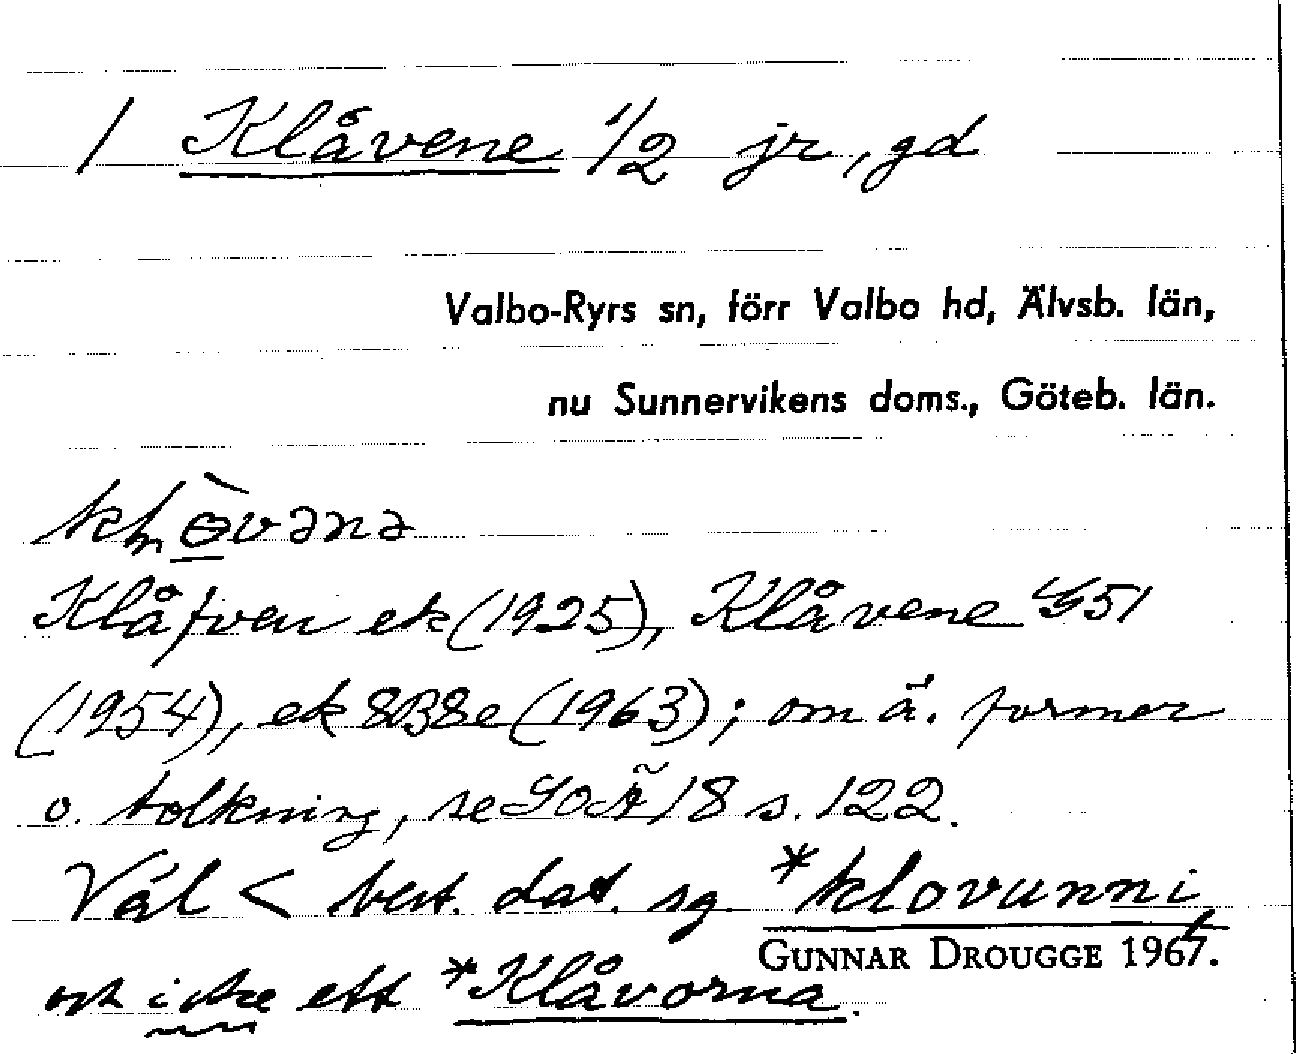 / Klåvene 1/2 jr, gd
Valbo-Ryrs sn, förr Valbo hd, Älvsb. län,
nu Sunnervikens doms., Göteb. län.
Klåfven ek (1925), Klåvene G51
(1954), ek 8B8e (1963); om ä. former
o. tolkning, se SOÄ 18 s. 122.
Väl < best. dat. sg. *klovunni
GUNNAR DROUGGE 1967.
och icke ett *Klåvorna.